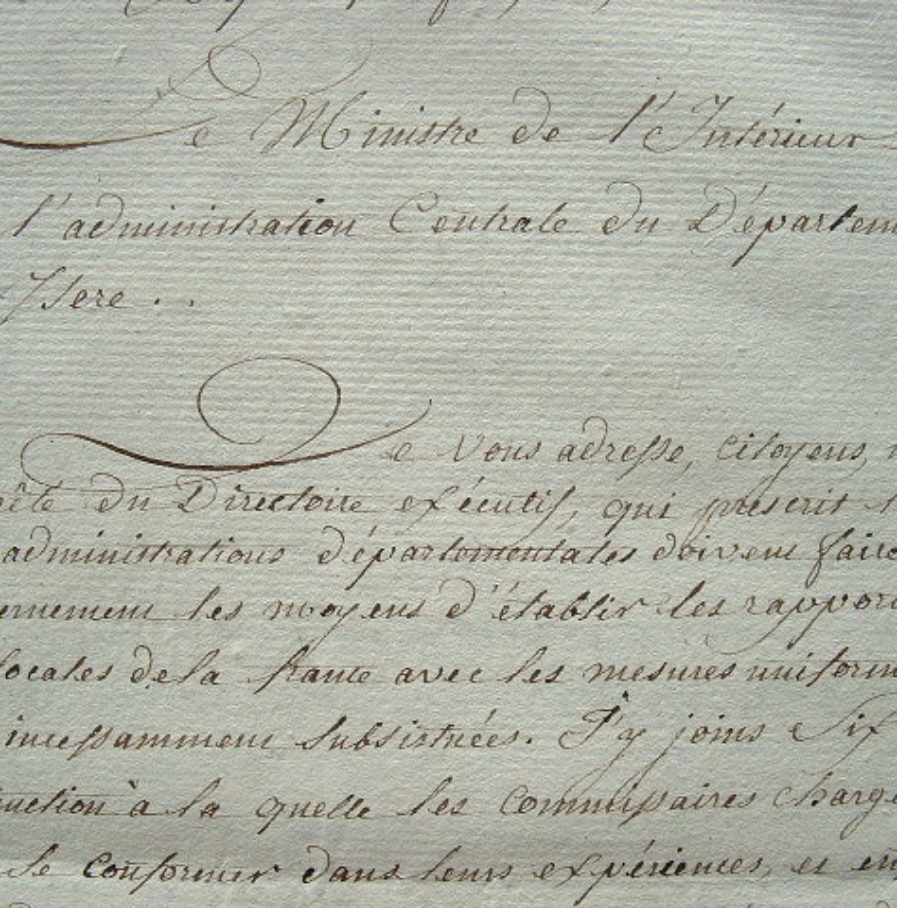 Le Ministre de l'Intérieur
l'administration Centrale du Départem
Isere . .
Je Vous adresse, Citoyens,
êté du Directoire exécutif, qui prescrit
administrations départementales doivent faire
ernement les moyens d'établir les rappor
locales de la france avec les mesures uniform
incessamment subsistuées. J'y joins Six
ruction à la quelle les Commissaires charg
se Conformer dans leurs expériences, et en